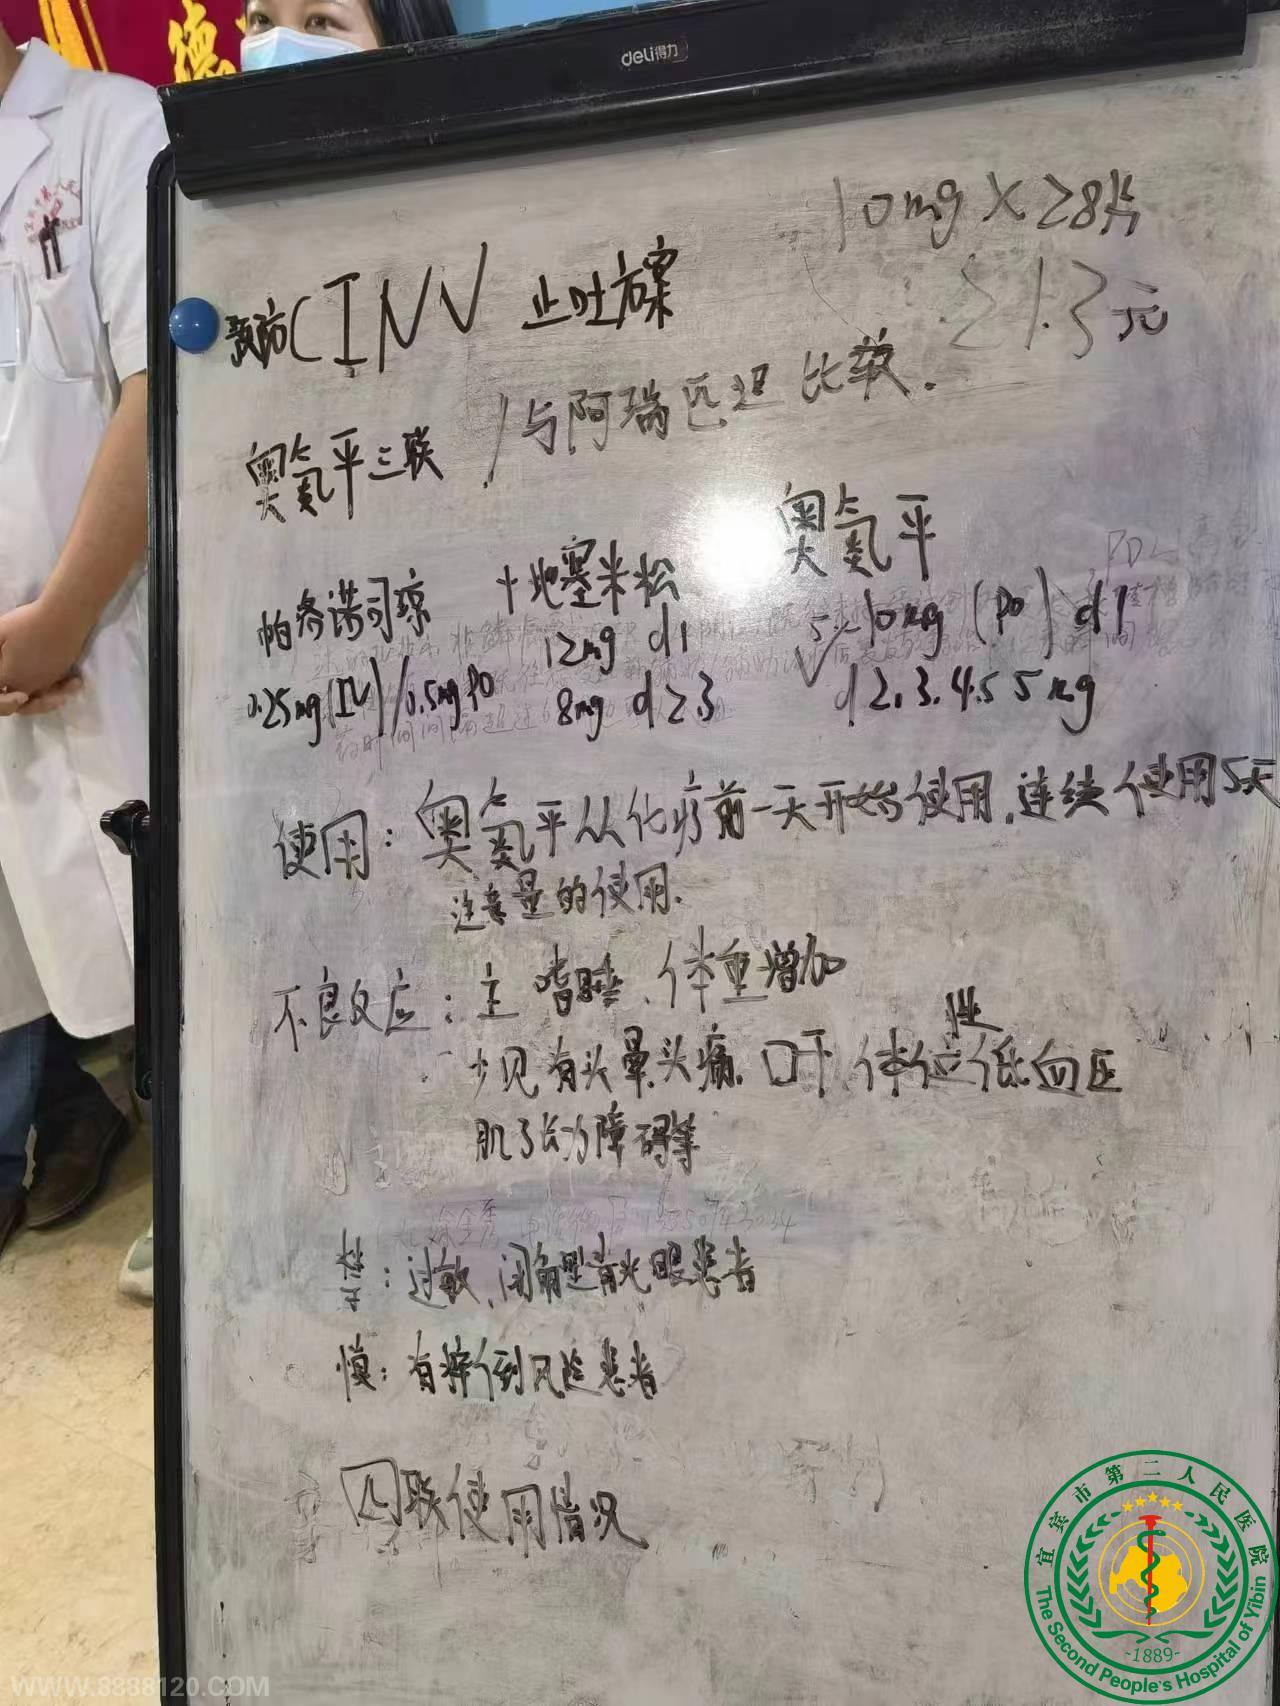 德
deli得力
10mg×28片
21.3元
预防CINV 止吐方案
与阿瑞匹坦 比较.
奥氮平三联
奥氮平
帕洛诺司琼 +地塞米松
12mg d1
5~10mg (PO) d1
0.25mg(IV)/0.5mgPO 8mg d2.3
d2.3.4.5 5mg
使用: 奥氮平从化疗前一天开始使用,连续使用5天
注意量的使用.
不良反应: 主 嗜睡、体重增加
少见有头晕、头痛、口干、体位性低血压
肌 动障碍等
禁: 过敏、闭角型青光眼患者
慎: 有摔倒风险患者
四联使用情况
宜宾市第二人民医院
The Second People's Hospital of Yibin
-1889-
WWW.8888120.COM